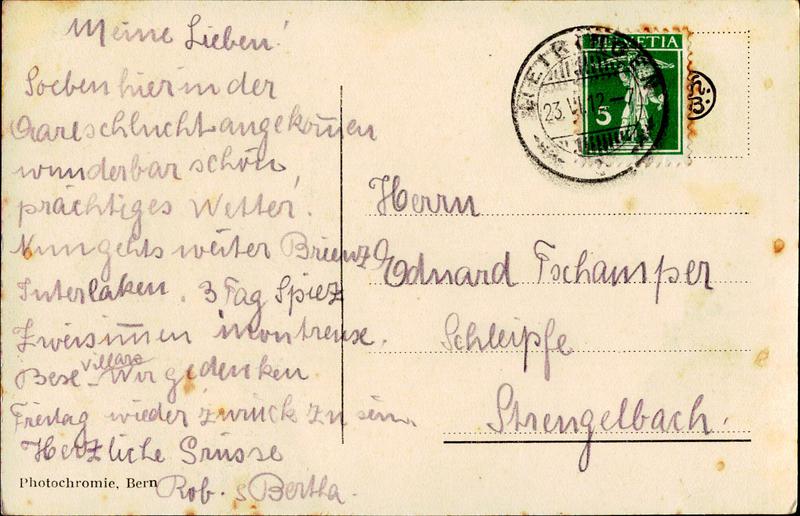 Meine Lieben!
Soeben hier in der
Aareschlucht angekom̅en
wunderbar schön,
prächtiges Wetter!
Nun gehts weiter Brienz
Interlaken. 3 Tag Spiez
Zweisim̅en montreux.
Villars
Bex – Wir gedenken
Freitag wieder zurück zu sein.
Herzliche Grüsse
Rob. s Bertha.
Photochromie, Bern
HELVETIA
5
MEIRINGEN
23. VII. 12. – 7
Herrn
Eduard Tschamper
Schleipfe
Strengelbach.